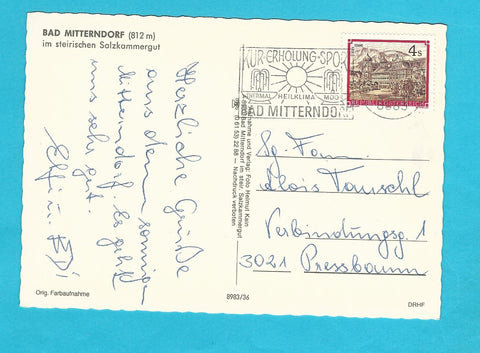 BAD MITTERNDORF (812 m)
im steirischen Salzkammergut
Herzliche Grüße
aus dem sonnigen
Mitterndorf. Es geht
uns sehr gut.
Elfi u.
Orig. Farbaufnahme
8983/36
DRHF
Aufnahme und Verlag: Foto Helmut Kain
8983 Bad Mitterndorf im steir. Salzkammergut
Tel. (0 61 53) 22 88 — Nachdruck verboten
KUR·ERHOLUNG·SPORT
THERMAL HEILKLIMA MOOR
BAD MITTERNDORF
4 S
REPUBLIK ÖSTERREICH
8983
Sg. Fam.
Alois Tauschl
Verbindungsg. 1
3021 Pressbaum